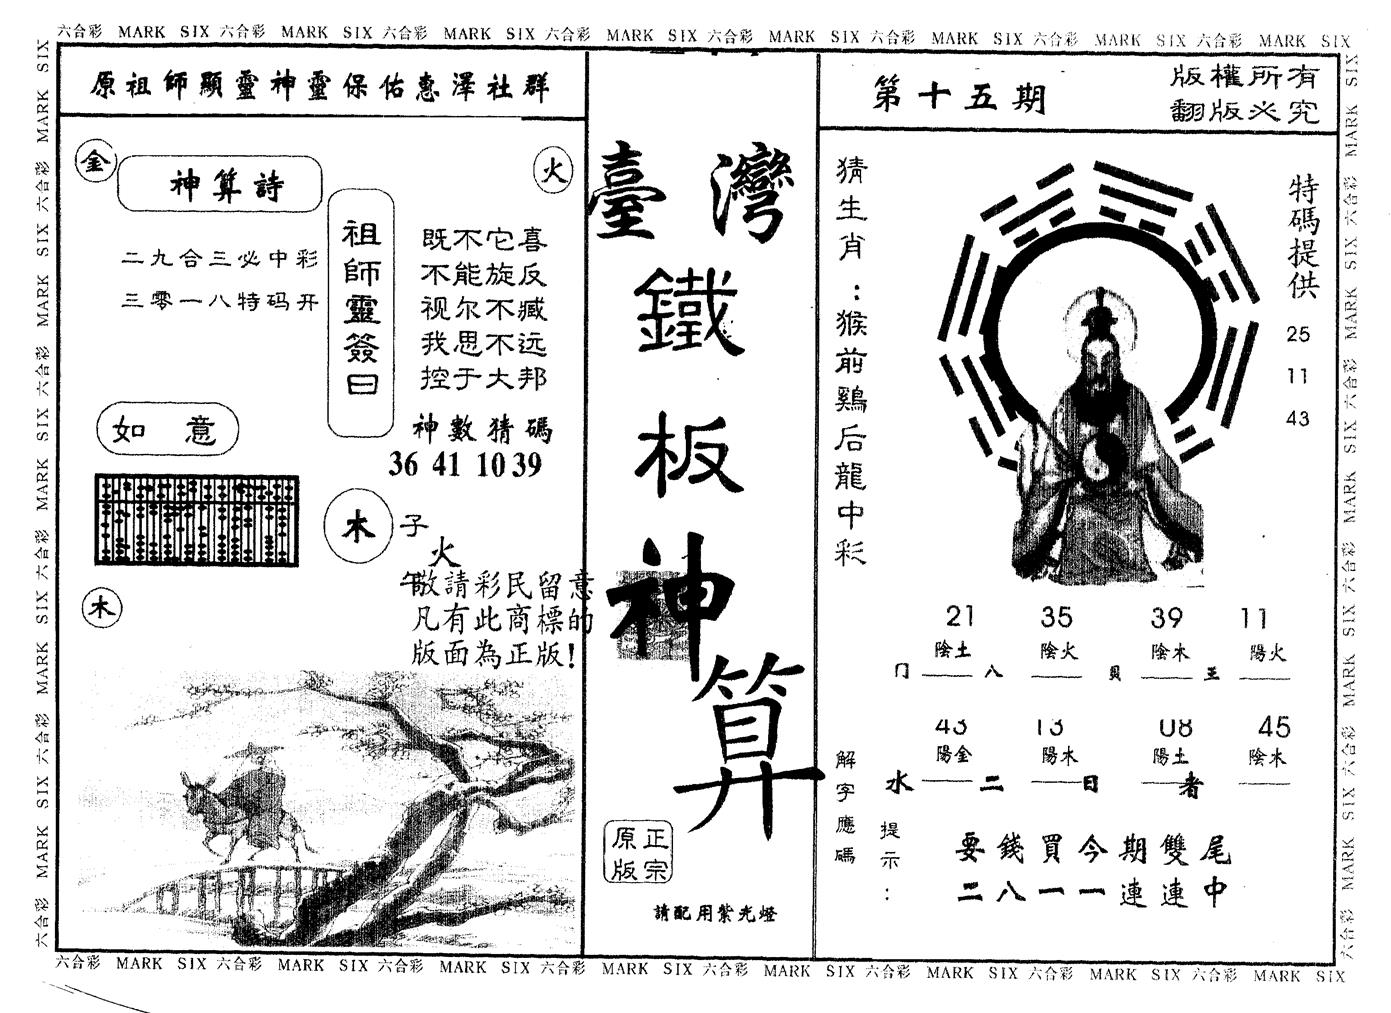 六合彩 MARK SIX 六合彩 MARK SIX 六合彩 MARK SIX 六合彩 MARK SIX 六合彩 MARK SIX 六合彩 MARK SIX 六合彩 MARK SIX 六合彩 MARK SIX
原祖師顯靈神靈保佑惠澤社群
金
神算詩
火
二九合三必中彩
三零一八特码开
祖師靈簽曰
既不它喜
不能旋反
视尔不臧
我思不远
控于大邦
神數猜碼
36 41 10 39
如意
木
子
火
午
敬請彩民留意
凡有此商標的
版面為正版!
木
臺灣
鐵
板
神
算
正宗
原版
請配用紫光燈
第十五期
版權所有
翻版必究
猜生肖:猴前鷄后龍中彩
特碼提供
25
11
43
21 35 39 11
陰土 陰火 陰木 陽火
冂 八 貝 王
43 13 08 45
陽金 陽木 陽土 陰木
水 二 日 者
解字應碼
提示:
要錢買今期雙尾
二八一一連連中
六合彩 MARK SIX 六合彩 MARK SIX 六合彩 MARK SIX 六合彩 MARK SIX 六合彩 MARK SIX 六合彩 MARK SIX 六合彩 MARK SIX 六合彩 MARK SIX